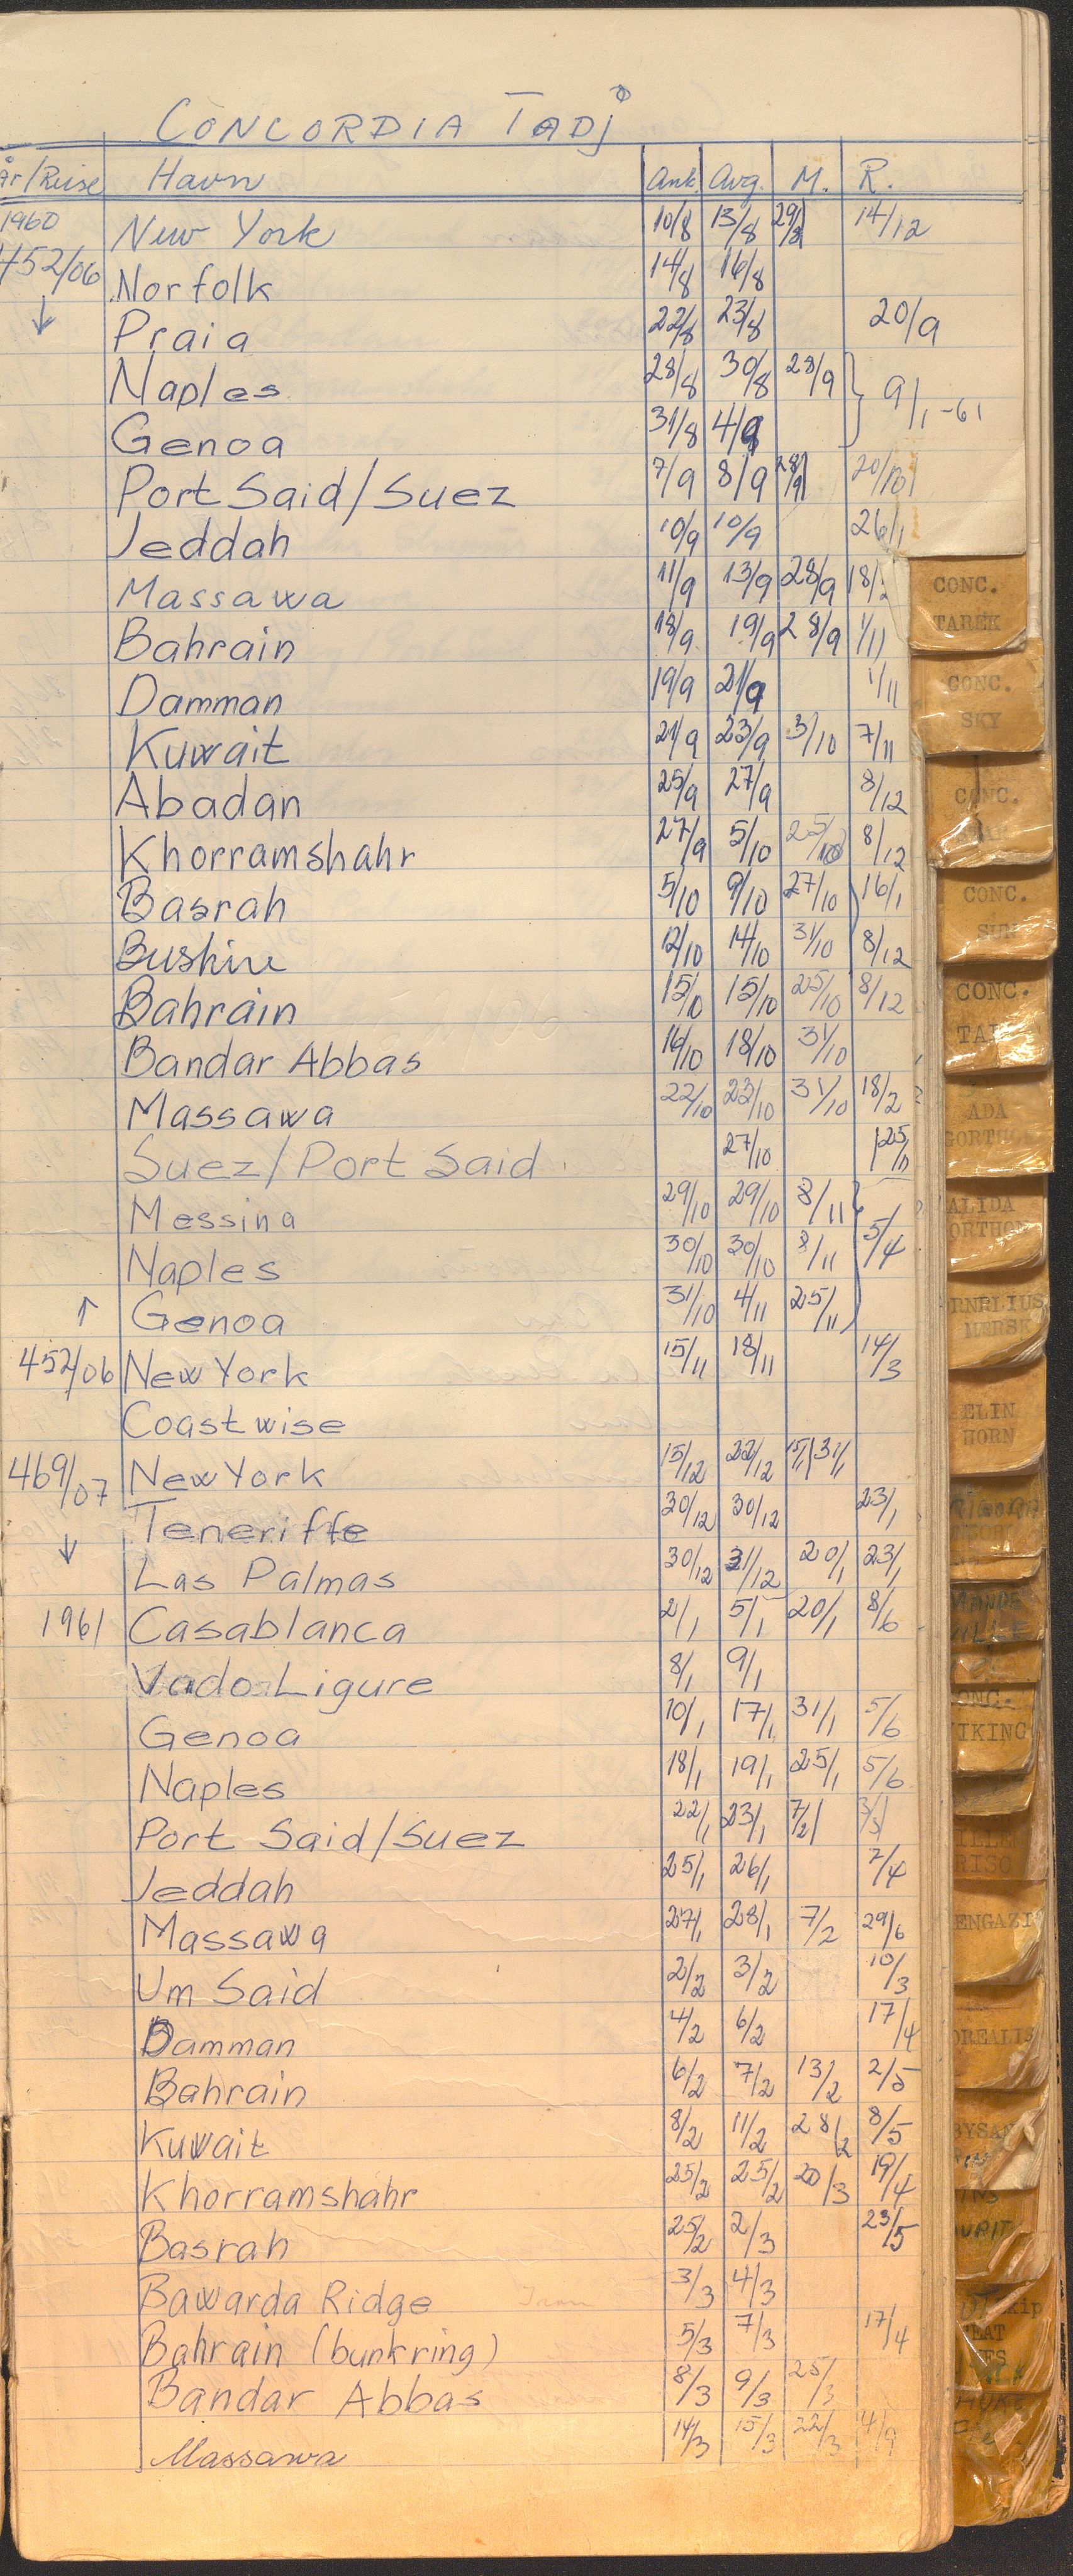 CONCORDIA TADJ
År/Reise Havn Ank. Avg. M. R.
1960 New York 10/8 13/8 29/8 14/12
452/06 Norfolk 14/8 16/8
↓ Praia 22/8 23/8 20/9
Naples 28/8 30/8 28/9 } 9/1-61
Genoa 31/8 4/9
Port Said/Suez 7/9 8/9 28/9 20/10
Jeddah 10/9 10/9 26/1
Massawa 11/9 13/9 28/9 18/2
Bahrain 18/9 19/9 28/9 1/11
Damman 19/9 21/9 1/11
Kuwait 21/9 23/9 3/10 7/11
Abadan 25/9 27/9 8/12
Khorramshahr 27/9 5/10 25/10 8/12
Basrah 5/10 9/10 27/10 16/1
Bushire 12/10 14/10 31/10 8/12
Bahrain 15/10 15/10 25/10 8/12
Bandar Abbas 16/10 18/10 31/10
Massawa 22/10 23/10 31/10 18/2
Suez/Port Said 27/10 25/11
Messina 29/10 29/10 8/11 } 5/4
Naples 30/10 30/10 8/11
↑ Genoa 31/10 4/11 25/11
452/06 New York 15/11 18/11 14/3
Coastwise
469/07 New York 15/12 22/12 15/1 31/1
Teneriffe 30/12 30/12 23/1
↓ Las Palmas 30/12 31/12 20/1 23/1
1961 Casablanca 2/1 5/1 20/1 8/6
Vado Ligure 8/1 9/1
Genoa 10/1 17/1 31/1 5/6
Naples 18/1 19/1 25/1 5/6
Port Said/Suez 22/1 23/1 7/2 3/3
Jeddah 25/1 26/1 7/4
Massawa 27/1 28/1 7/2 29/6
Um Said 2/2 3/2 10/3
Damman 4/2 6/2 17/4
Bahrain 6/2 7/2 13/2 2/5
Kuwait 8/2 11/2 28/2 8/5
Khorramshahr 25/2 25/2 20/3 19/4
Basrah 25/2 2/3 23/5
Bawarda Ridge 3/3 4/3
Bahrain (bunkring) 5/3 7/3 17/4
Bandar Abbas 8/3 9/3 25/3
Massawa 14/3 15/3 22/3 4/9
CONC.
TAREK
CONC.
SKY
CONC.
CONC.
SUN
CONC.
ADA
ALIDA
ELIN
HORN